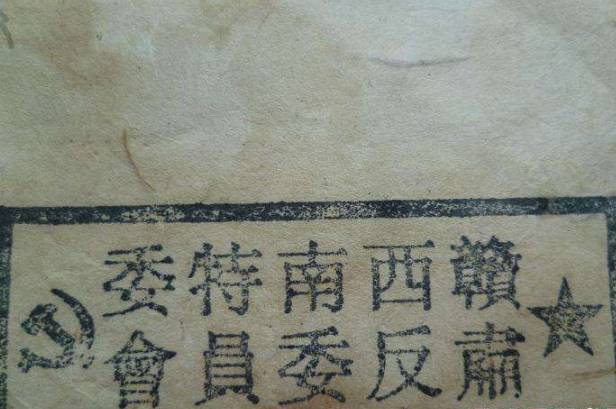 贛西南特委
肅反委員會